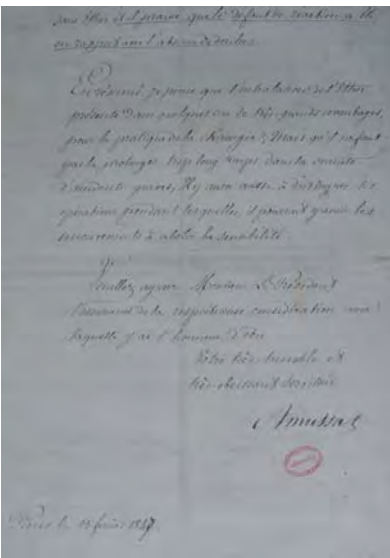 sans éther et il prouve que le défaut de réaction a été
en rapport avec l'abus
En résumé, je pense que l'inhalation de l'Ether
présente dans quelques cas de très grands avantages,
pour la pratique de la Chirurgie; Mais qu'il ne faut
pas la prolonger trop long temps dans la crainte
d'accidents graves. Il y aura aussi à distinguer les
opérations pendant lesquelles, il pourrait y avoir des
inconvénients à abolir la sensibilité.
Veuillez agréer Monsieur Le Président
l'assurance de la respectueuse considération avec
laquelle j'ai l'honneur d'être
Votre très humble et
très obéissant serviteur
Amussat
Paris le 15 février 1847.